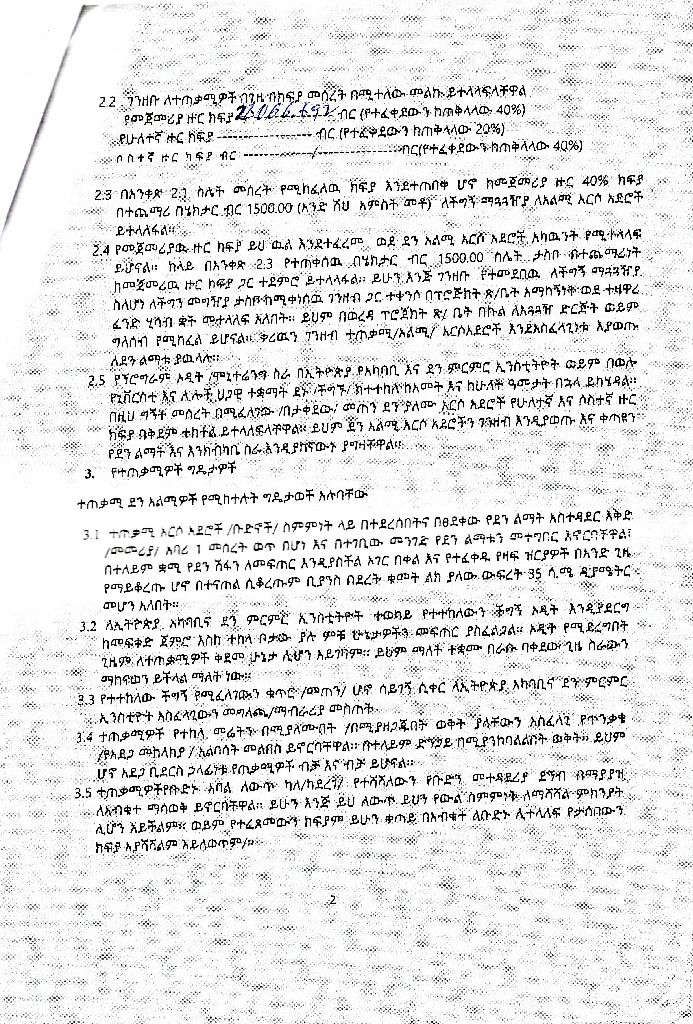 2.2 ገንዘቡ ለተጠቃሚዎች በጊዜ በክፍያ መሰረት በሚተለው መልኩ ይተላለፍላቸዋል
የመጀመሪያ ዙር ክፍያ ብር (የተፈቀደውን ከጠቅላላው 40%)
የሁለተኛ ዙር ክፍያ ------------------ ብር (የተፈቀደውን ከጠቅላላው 20%)
ሶስተኛ ዙር ክፍያ ብር ---------------/----------------ብር(የተፈቀደውን ከጠቅላላው 40%)
2.3 በአንቀጽ 2.1 ስሌት መሰረት የሚከፈለዉ ክፍያ እንደተጠበቀ ሆኖ ከመጀመሪያ ዙር 40% ክፍያ
በተጨማሪ በሄክታር ብር 1500.00 (አንድ ሽህ አምስት መቶ) ለችግኝ ማጓጓዣያ ለአልሚ አርሶ አደሮች
ይተላለፋል።
2.4 የመጀመሪያዉ ዙር ክፍያ ይህ ዉል እንደተፈረመ ወደ ደን አልሚ አርሶ አደሮች አካዉንት የሚተላለፍ
ይሆናል። ከላይ በአንቀጽ 2.3 የተጠቀሰዉ በሄክታር ብር 1500.00 ስሌት ታስቦ በተጨማሪነት
ከመጀመሪዉ ዙር ክፍያ ጋር ተደምሮ ይተላለፋል። ይሁን እንጅ ገንዘቡ የተመደበዉ ለችግኝ ማጓጓዣያ
ስለሆነ ለችግኝ መግዣያ ታስቦ ከሚቀነሰዉ ገንዘብ ጋር ተቀንሶ በፕሮጅክት ጽ/ቤት አማካኝነት ወደ ተዘዋሪ
ፈንድ ሂሳብ ቋት መተላለፍ አለበት። ይህም በወረዳ ፕሮጅክት ጽ/ ቤት በኩል ለአጓጓዥ ድርጅት ወይም
ግለሰብ የሚከፈል ይሆናል። ቀሪዉን ገንዘብ ተጠቃሚ/አልሚ/ አርሶአደሮች እንደአስፈላጊነቱ እያወጡ
ለደን ልማቱ ያዉላሉ።
2.5 የፕሮግራም ኦዲት /ሞኒተሬንግ ስራ በኢትዮጵያ የአካባቢ እና ደን ምርምር ኢንስቲትዮት ወይም በወሎ
ዩኒቨርስቲ እና ሌሎች ህጋዊ ተቋማት ደኑ /ችግኙ/ ከተተከለ በአመት እና ከሁለት ዓመታት በኋላ ይካሄዳል።
በዚህ ግኝት መሰረት በሚፈለገው /በታቀደው/ መጠን ደን ያለሙ አርሶ አደሮች የሁለተኛ እና ሶስተኛ ዙር
ክፍያ በቅደም ተከተል ይተላለፍላቸዋል። ይህም ደን አልሚ አርሶ አደሮችን ገንዘብ እንዲያወጡ እና ቀጣዩን
የደን ልማት እና እንክብካቤ ስራ እንዲያከናውኑ ያግዛቸዋል።
3. የተጠቃሚዎች ግዴታዎች
ተጠቃሚ ደን አልሚዎች የሚከተሉት ግዴታወች አሉባቸው
3.1 ተጠቃሚ አርሶ አደሮች /ቡድኖች/ ስምምነት ላይ በተደረሰበትና በፀደቀው የደን ልማት አስተዳደር እቅድ
/መመሪያ/ አባሪ 1 መሰረት ወጥ በሆነ እና በተገቢው መንገድ የደን ልማቱን መተግበር እኖርባቸዋል፣
በተለይም ቋሚ የደን ሽፋን ለመፍጠር እንዲያስችል አገር በቀል እና የተፈቀዱ የዛፍ ዝርያዎች በአንድ ጊዜ
የማይቆረጡ ሆኖ በተናጠል ሲቆረጡም ቢያንስ በደረት ቁመት ልክ ያለው ውፍረት 35 ሴ.ሜ ዲያሜትር
መሆን አለበት።
3.2 ለኢትዮጵያ አካባቢና ደን ምርምር ኢንስቲትዮት ተወካይ የተተከለውን ችግኝ ኦዲት እንዲያደርግ
ከመፍቀድ ጀምሮ እስከ ተከላ ቦታው ያሉ ምቹ ሁኔታዎችን መፍጠር ያስፈልጋል። ኦዲት የሚደረግበት
ጊዜም ለተጠቃሚዎች ቀደመ ሁኔታ ሊሆን አይገባም። ይህም ማለት ተቋሙ በራሱ ባቀደው ጊዜ ስራውን
ማከናወን ይችላል ማለት ነው።
3.3 የተተከለው ችግኝ የሚፈለገውን ቁጥር /መጠን/ ሆኖ ሳይገኝ ሲቀር ለኢትዮጵያ አካባቢና ደን ምርምር
ኢንስቲዮት አስፈላጊውን መግላጫ/ማብራሪያ መስጠት
3.4 ተጠቃሚዎች የተከላ መሬትን በሚያለሙበት /በሚያዘጋጁበት ወቅት ያላቸውን አስፈላጊ የጥንቃቄ
/የአደጋ መከላከያ / አልባሳት መልበስ ይኖርባቸዋል። በተለይም ድግኃይ በሚያንከባልልበት ወቅት። ይህም
ሆኖ አደጋ ቢደርስ ኃላፊነቱ የጠቃሚዎች ብቻ እና ብቻ ይሆናል።
3.5 ተጠቃሚዎች የቡድኑ አባል ለውጥ ካለ/ካደረገ/ የተሻሻለውን የቡድን መተዳደሪያ ደንብ በማያያዝ
ለአብቁተ ማሳወቅ ይኖርባቸዋል። ይሁን እንጅ ይህ ለውጥ ይህን የውል ስምምነት ለማሻሻል ምክንያት
ሊሆን አይችልም። ወይም የተፈጸመውን ክፍያም ይሁን ቀጣይ በአብቁተ ለቡድኑ ሊተላለፍ የታሰበውን
ክፍያ አያሻሽልም አይለወጥም/።
2